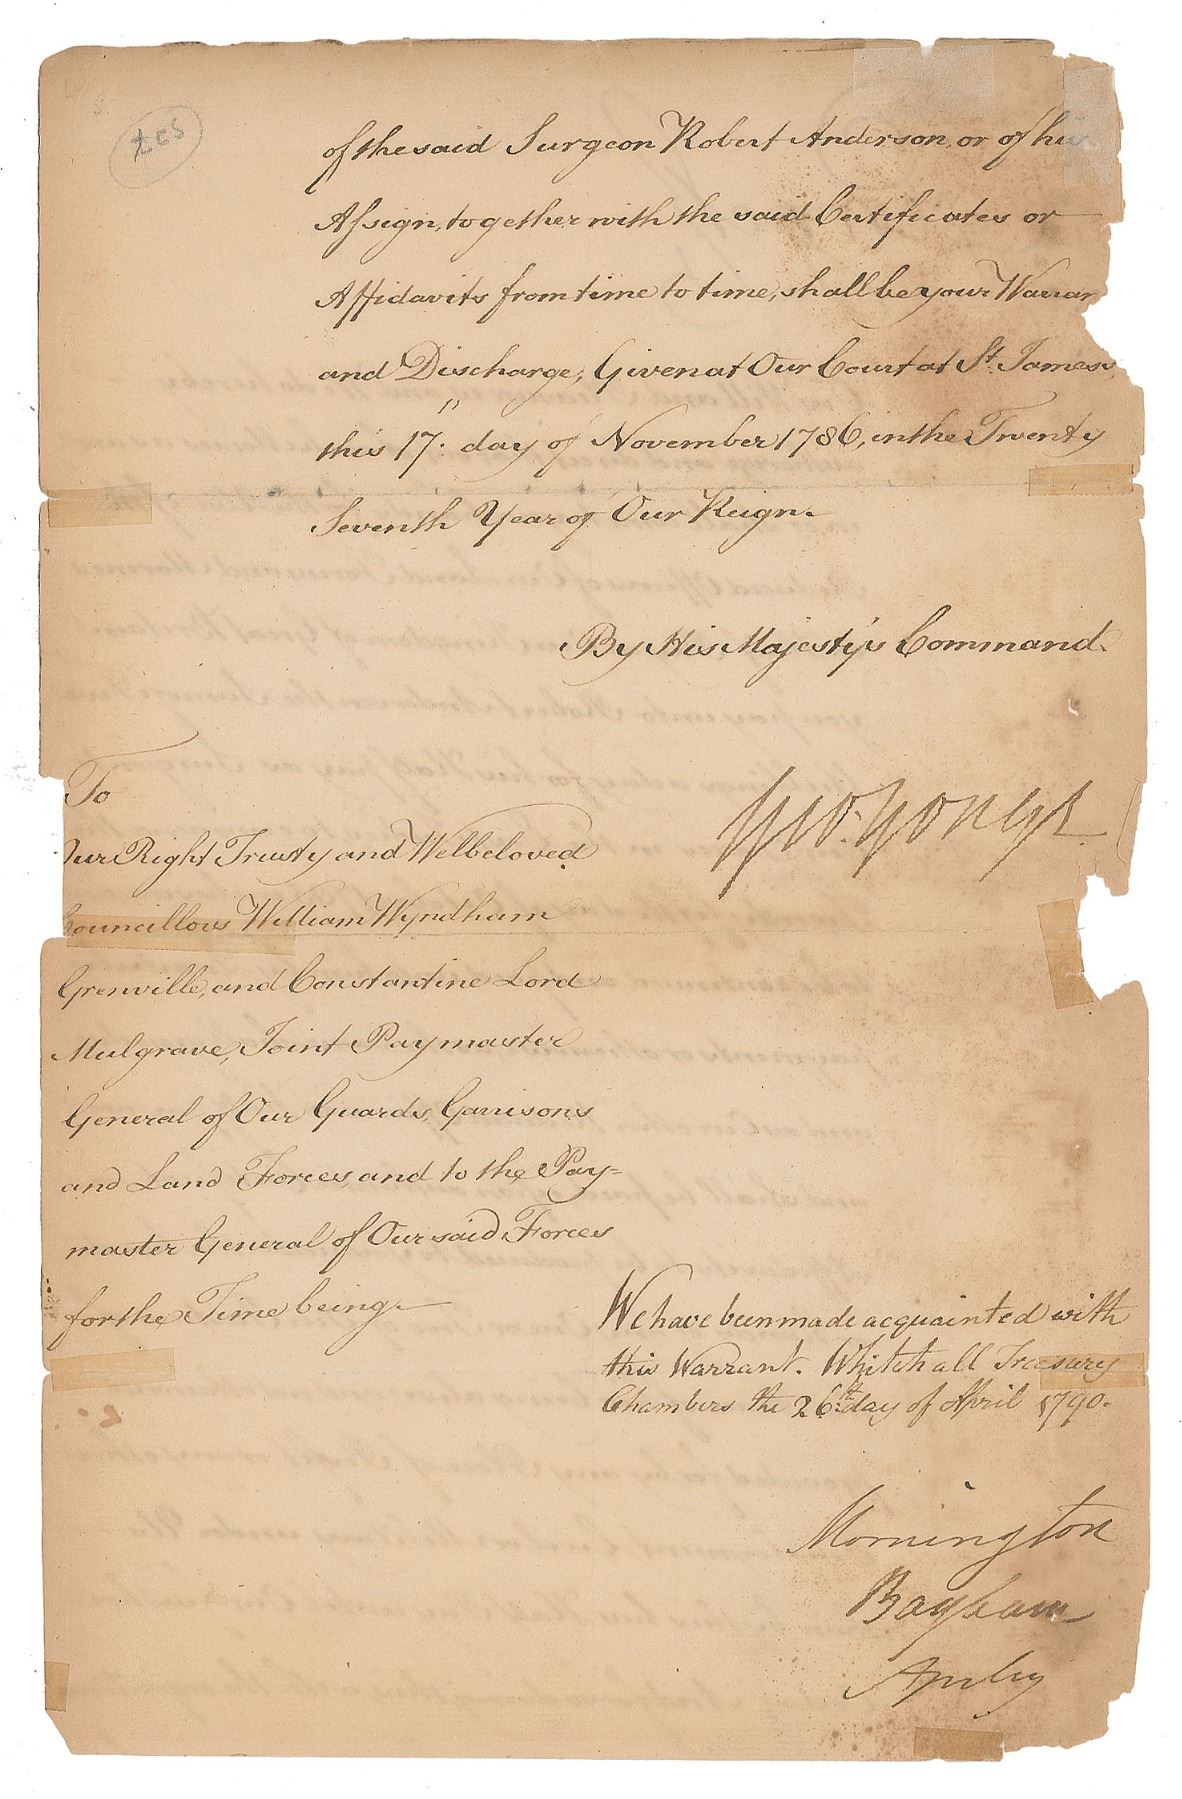 of the said Surgeon Robert Anderson, or of his
Assign, together with the said Certificates or
Affidavits from time to time, shall be your Warran
and Discharge; Given at Our Court at St. James's
this 17th day of November 1786, in the Twenty
Seventh Year of Our Reign.
By His Majesty's Command.
Geo. Yonge
To
Our Right Trusty and Welbeloved
Councillors William Wyndham
Grenville, and Constantine Lord
Mulgrave, Joint Paymaster
General of Our Guards, Garrisons
and Land Forces, and to the Pay=
master General of Our said Forces
for the Time being.
We have been made acquainted with
this Warrant. Whitehall Treasury
Chambers the 26th day of April 1790.
Mornington
Bayham
Apsley